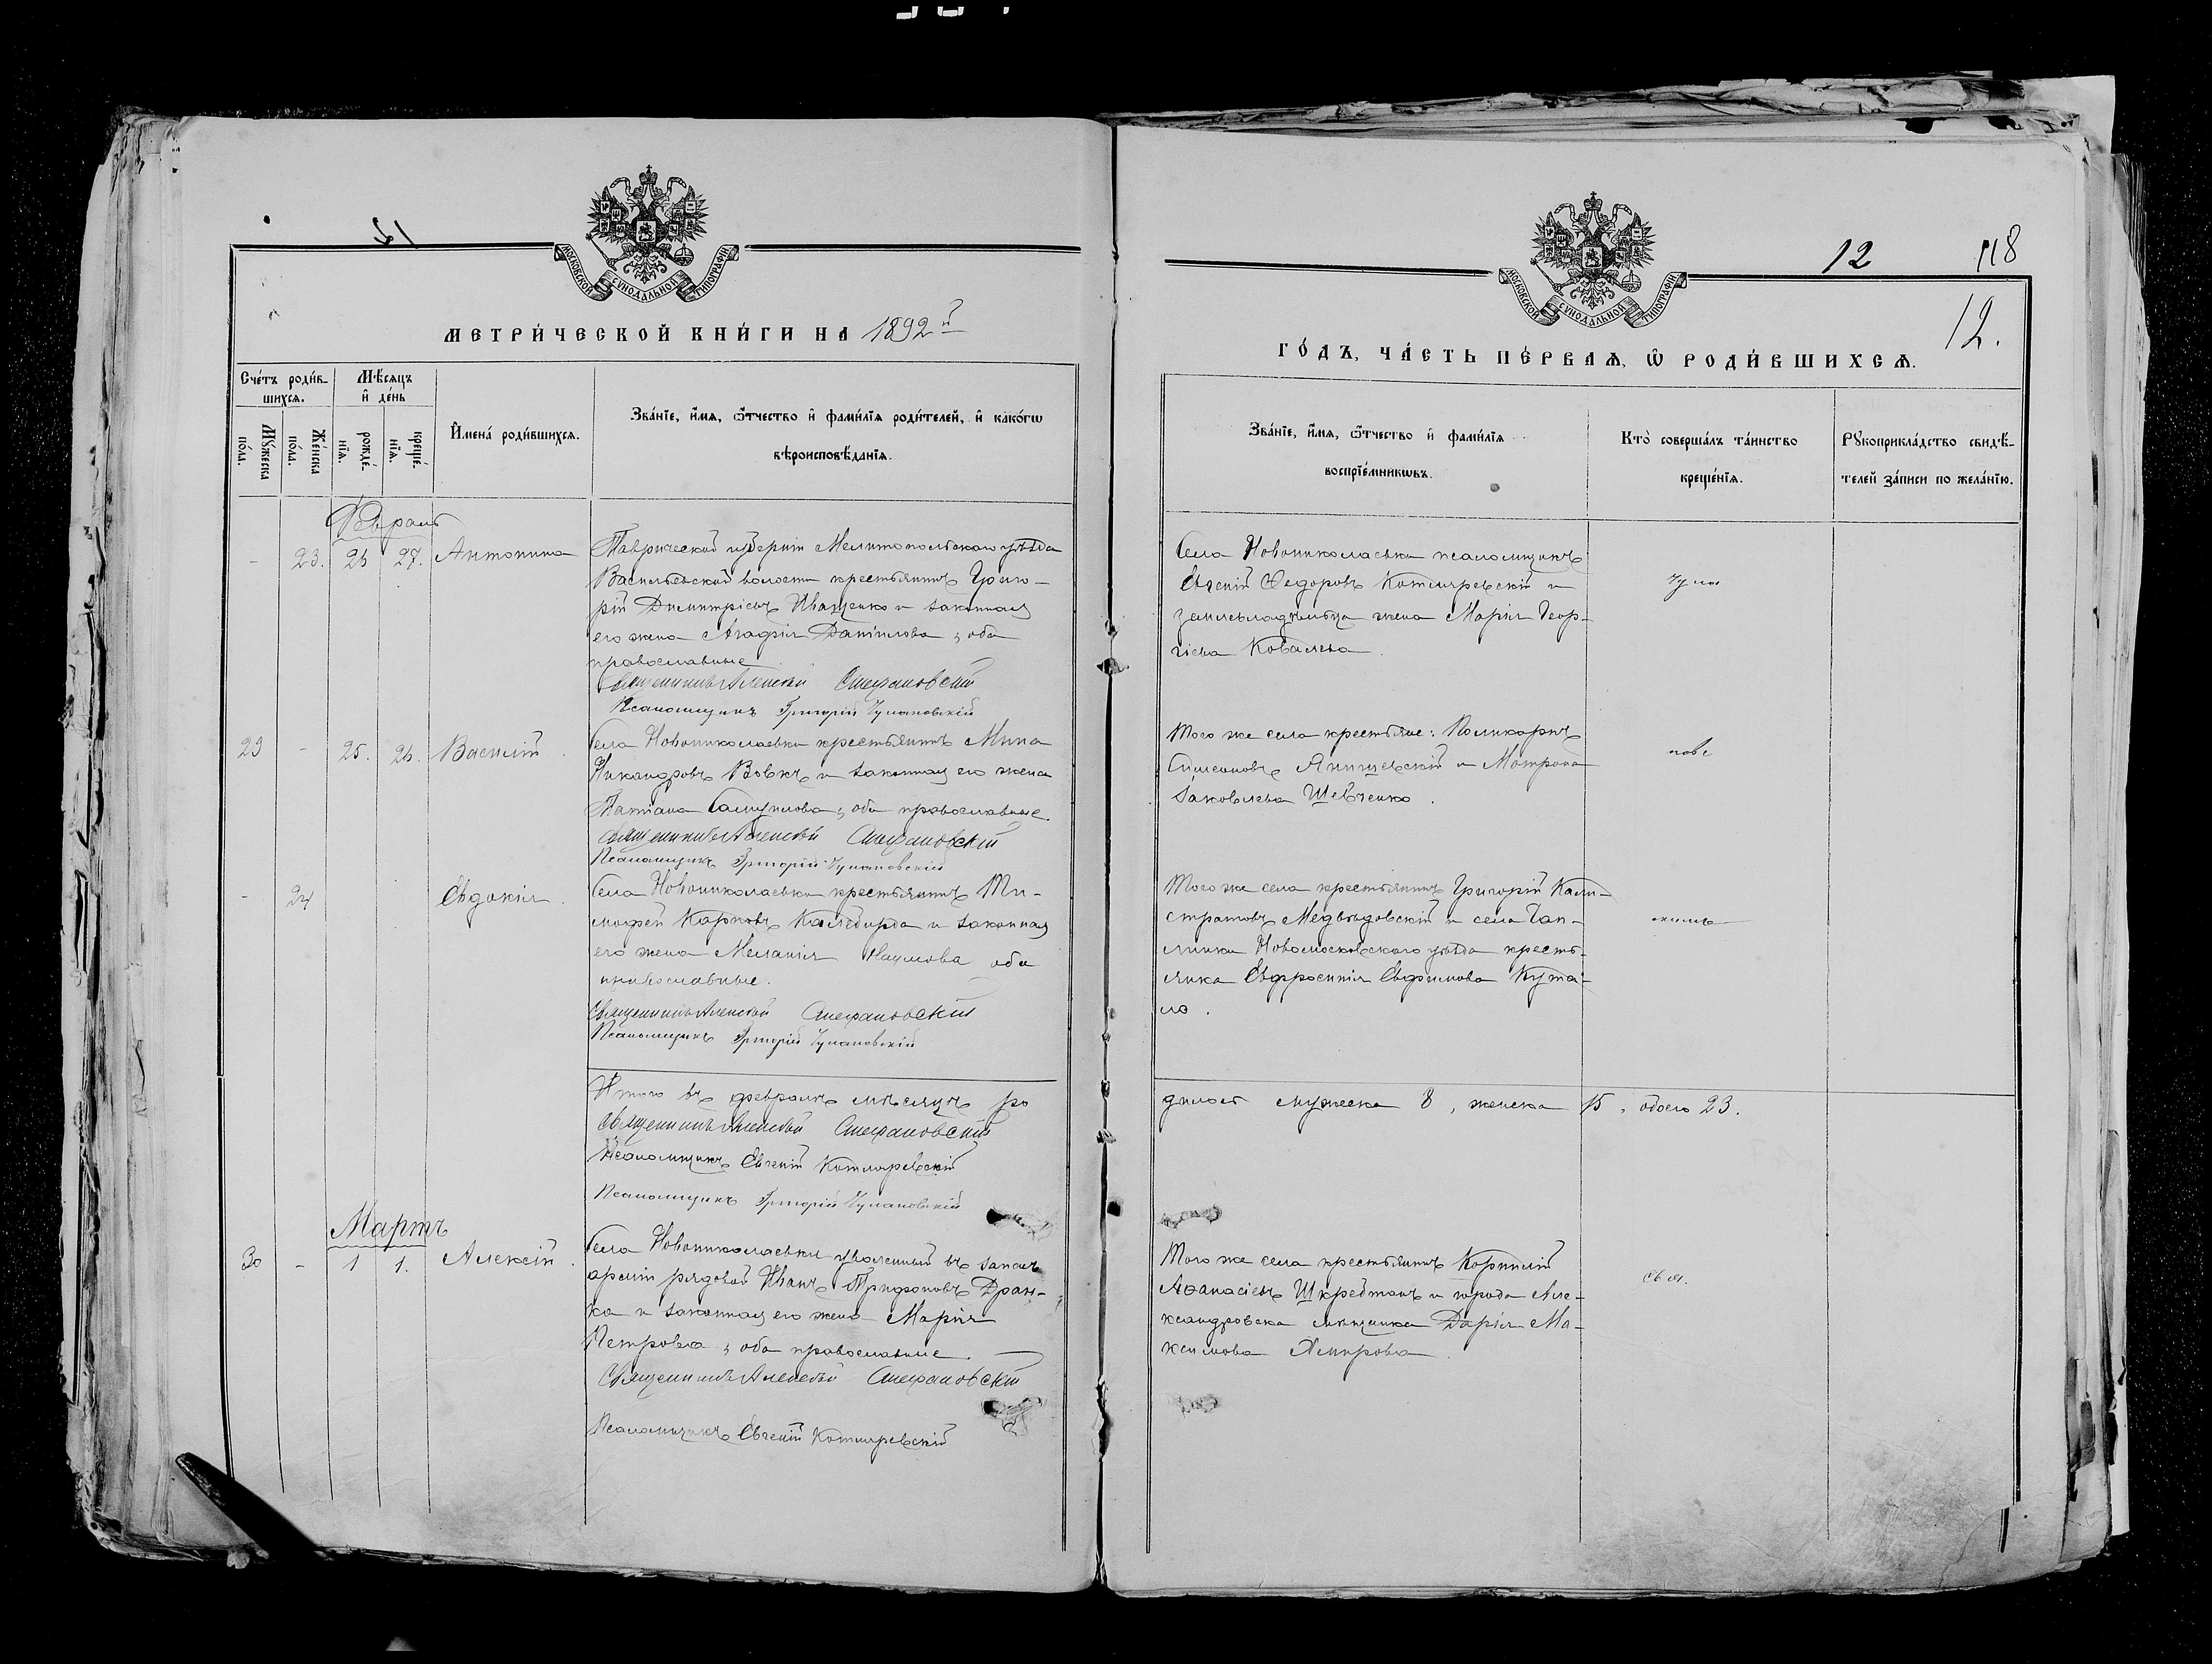 МОСКОВСКОЙ СѴНОДАЛЬНОЙ ТИПОГРАФІИ
МЕТРИ́ЧЕСКОЙ КНИ́ГИ НА 1892 й
Сче́тъ роди́в-
шихсѧ.
Мѣ́сѧцъ
и҆ де́нь
И҆мена̀ роди́вшихсѧ.
Зва́нїе, и҆́мѧ, ѻ҆́тчество и҆ фами́лїѧ роди́телей, и҆ како́гѡ
вѣроисповѣ́данїѧ.
Мꙋ́жеска
по́ла.
Же́нска
по́ла.
рожде́-
нїѧ.
креще́-
нїѧ.
Февраль
- 23. 26 27. Антонина
Таврической губерніи Мелитопольскаго уѣзда
Васильевской волости крестьянинъ Григо-
рій Димитріевъ Иващенко и законная
его жена Агафія Даніилова, оба
православные
Священникъ Алексѣй Стефановскій
Псаломщикъ Григорій Чулановскій
29 - 25. 26. Василій
Села Новониколаевки крестьянинъ Мина
Никандровъ Вовкъ и законная его жена
Татіана Самуилова, оба православные.
Священникъ Алексѣй Стефановскій
Псаломщикъ Григорій Чулановскій
- 24 Евдокія
Села Новониколаевки крестьянинъ Ти-
мофей Карповъ и законная
его жена Меланія Наумова оба
православные.
Священникъ Алексѣй Стефановскій
Псаломщикъ Григорій Чулановскій
Итого въ февралѣ мѣсяцѣ ро
Священникъ Алексѣй Стефановскій
Псаломщикъ Евгеній Котляревскій
Псаломщикъ Григорій Чулановскій
Мартъ
30 - 1 1. Алексій
Села Новониколаевки уволенный въ запасъ
арміи рядовой Иванъ Трифоновъ Дран-
ка и законная его жена Марія
Петрова, оба православные.
Священникъ Алексѣй Стефановскій
Псаломщикъ Евгеній Котляревскій
12 118
12.
МОСКОВСКОЙ СѴНОДАЛЬНОЙ ТИПОГРАФІИ
ГО́ДЪ, ЧА́СТЬ ПЕ́РВАѦ, Ѽ РОДИ́ВШИХСѦ.
Зва́нїе, и҆́мѧ, ѻ҆́тчество и҆ фами́лїѧ
воспрїе́мникѡвъ.
Кто̀ соверша́лъ та́инство
креще́нїѧ.
Рꙋкоприкла́дство свидѣ́-
телей за́писи по жела́нїю.
Села Новониколаевки псаломщикъ
Евгеній Федоровъ Котляревскій и
землевладѣльца жена Марія Геор-
гіева Ковалева
Того же села крестьяне: Поликарпъ
Симеоновъ Янишевскій и Матрона
Іаковлева Шевченко.
Того же села крестьянинъ Григорій Кали-
стратовъ Медвѣдовскій и села
Новомосковскаго уѣзда кресть-
янка Евфросинія Евфимова
дилось мужеска 8, женска 15, обоего 23.
Того же села крестьянинъ Корнилій
Аѳанасіевъ и города Але-
ксандровска мѣщанка Дарія Ма-
ксимова